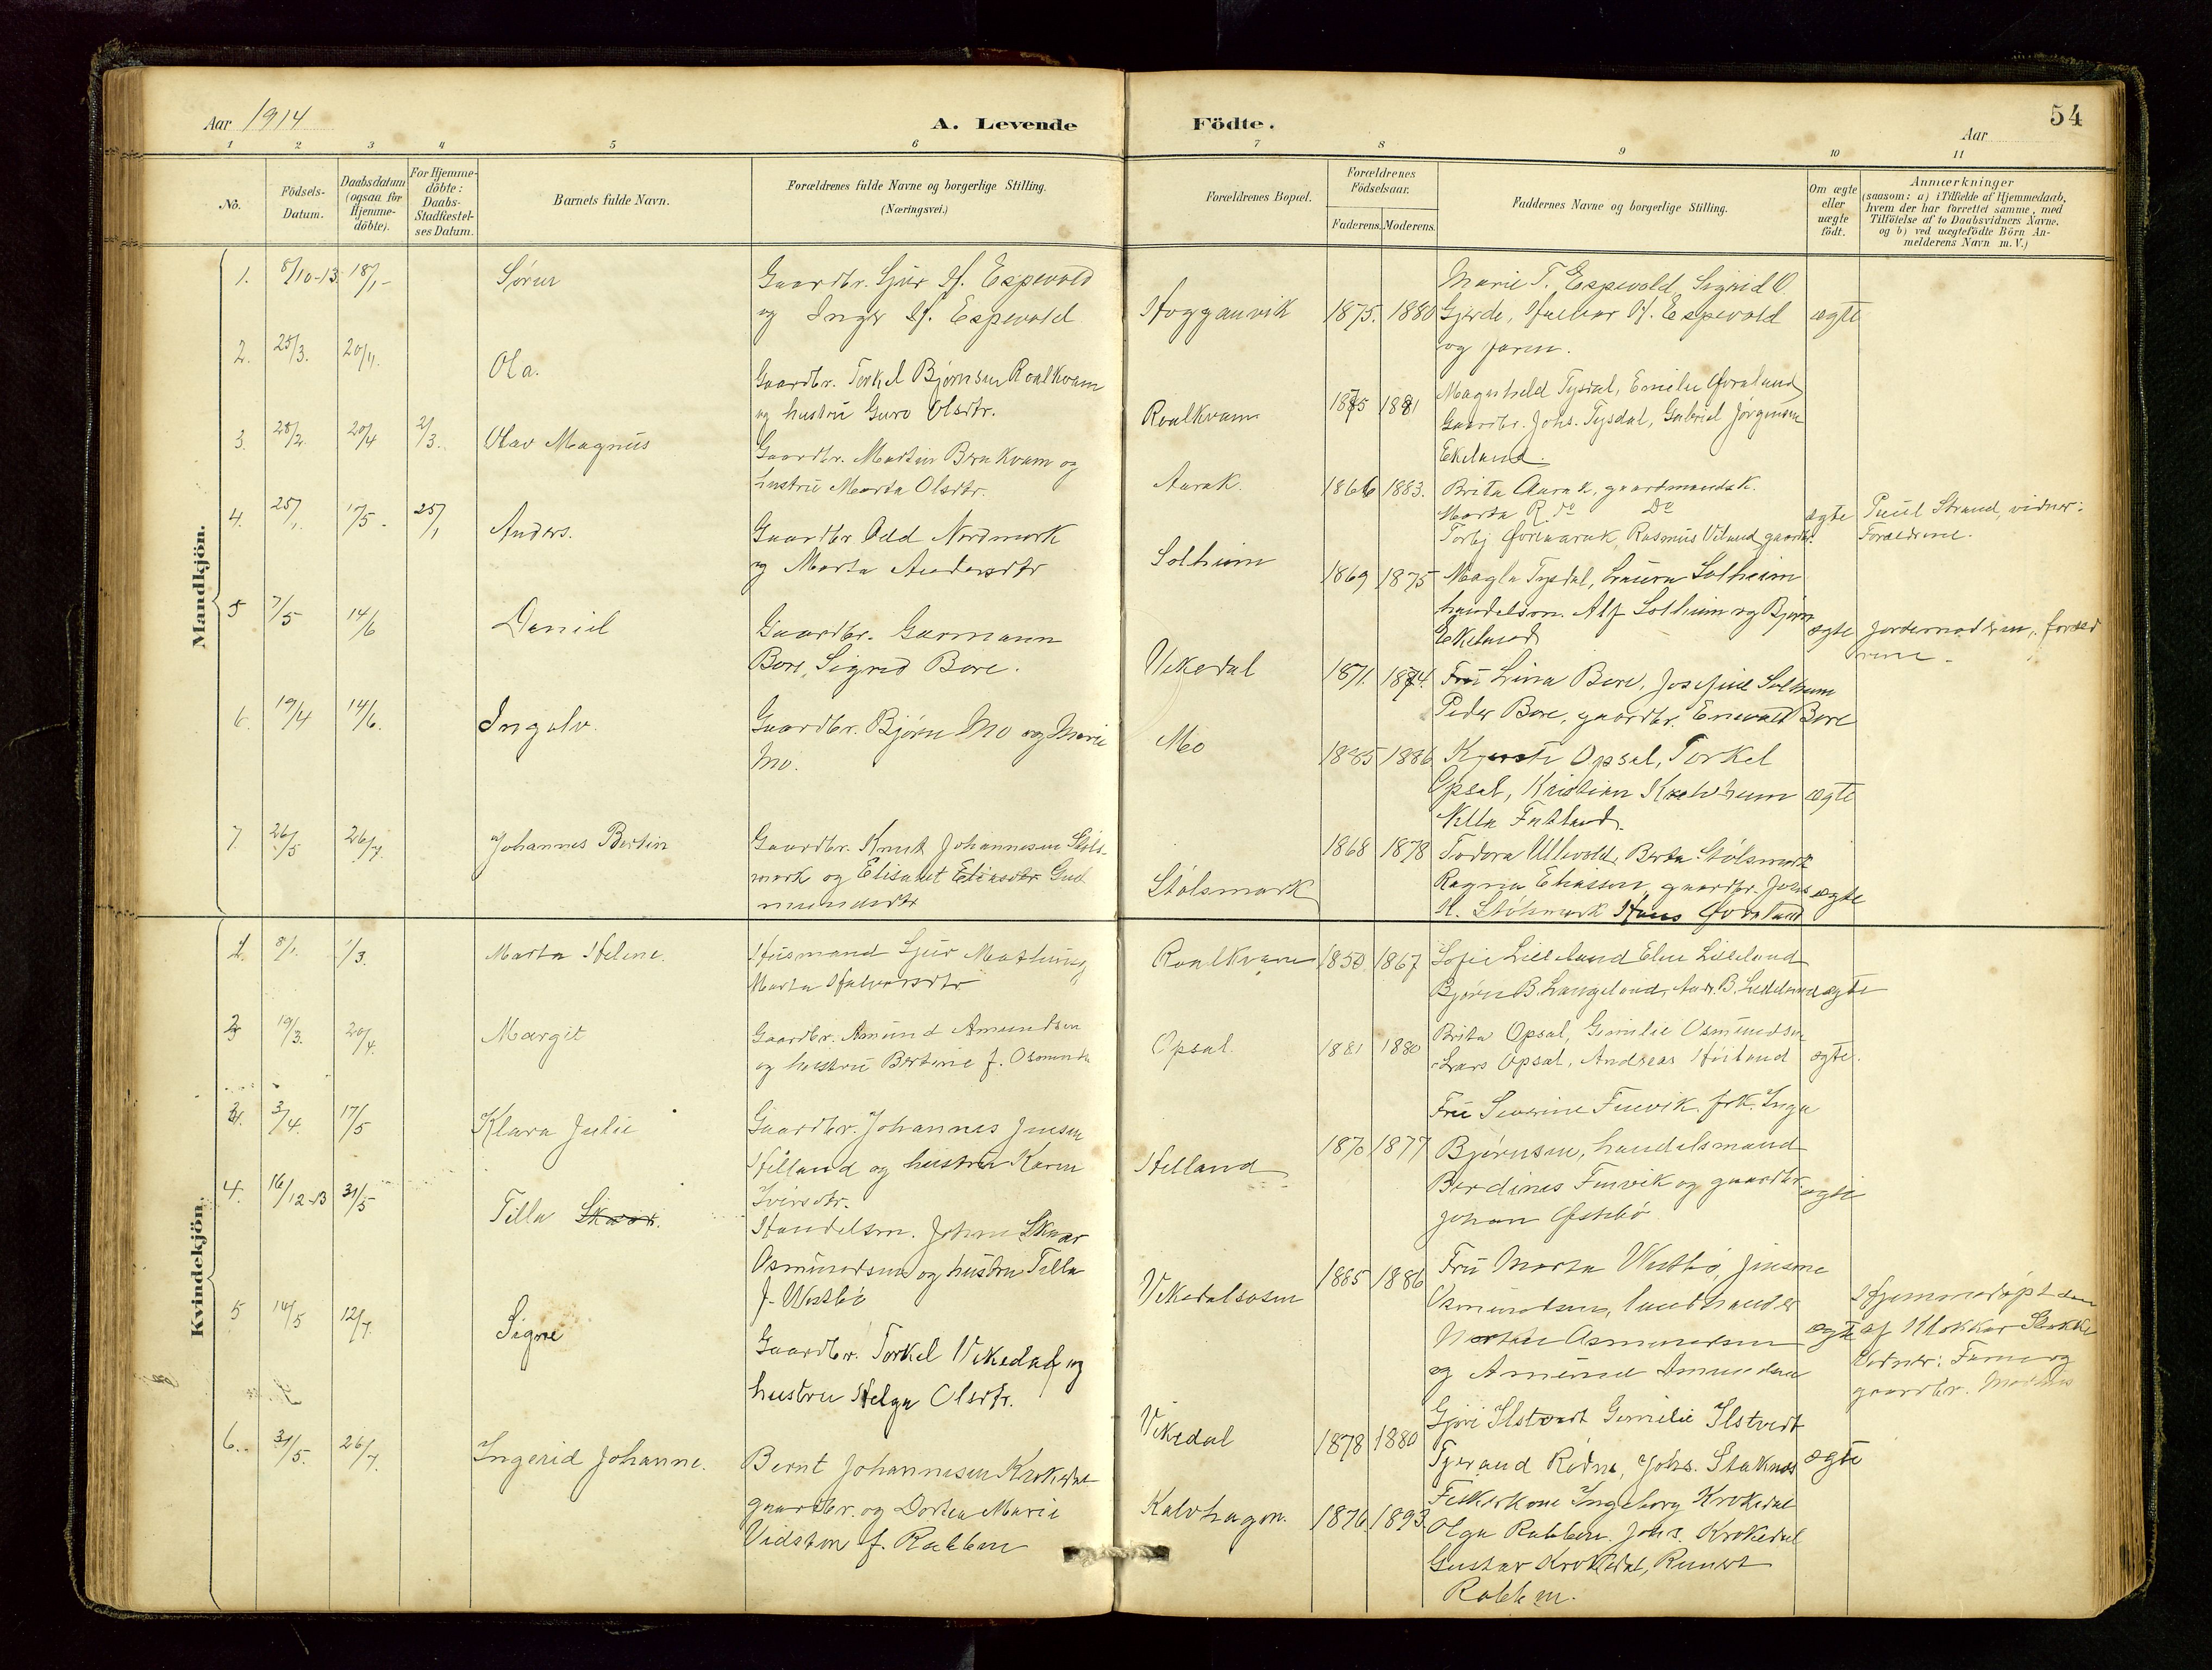 Aar 1914
A. Levende
Födte.
Aar
54
1 2 3 4 5 6 7 8 9 10 11
No.
Födsels-
Datum.
Daabsdatum
(ogsaa for
Hjemme-
döbte).
For Hjemme-
döbte:
Daabs-
Stadfæstel-
ses Datum.
Barnets fulde Navn.
Forældrenes fulde Navne og borgerlige Stilling.
(Næringsvei.)
Forældrenes Bopæl.
Forældrenes
Födselsaar.
Faderens. Moderens.
Faddernes Navne og borgerlige Stilling.
Om ægte
eller
uægte
födt.
Anmærkninger
(saasom: a) i Tilfælde af Hjemmedaab,
hvem der har forrettet samme, med
Tilföielse af to Daabsvidners Navne,
og b) ved uægtefödte Börn An-
melderens Navn m. V.)
Mandkjön.
1. 8/10-13 18/1- Sörine
Gaardbr. Sjur H. Espevold
og Inger H. Espevold
Hogganvik 1875. 1880
Marie T. Espevold, Sigrid O.
Gjerde, Halvar H. Espevold
og faren.
ægte
2. 25/3. 20/4. Ola.
Gaardbr. Torkel Bjørnsen Roalkvam
og hustru Guro Olsdtr.
Roalkvam 1875 1881
Magnhild Tysdal, Emilie Øvraland
Gaardbr. Johs. Tysdal, Gabriel Jørgensen
Ekeland.
3. 28/2. 20/4 2/3. Olav Magnus
Gaardbr. Martin Brækvam og
hustru Marta Olsdtr.
Aarak. 1866 1883.
Brita Aarak, gaardmandsk.
Marta R. do Do
Torbj Øvrenaruk, Rasmus Viland gaardbr.
ægte
Puul Strand, vidner:
Forældrene.
4. 25/1. 17/5- 25/1 Anders.
Gaardbr. Odd Nordmork
og Marta Andersdtr
Solheim 1869 1875
Magla Tysdal, Laura Solheim
handelsm. Alf Solheim og Bjørn
Ekeland
ægte
Jordemoderen, foræld
rene.
5 7/5 14/6 Daniel
Gaardbr. Garmann
Bore, Sigrid Bore.
Vikedal 1871. 1874.
Fru Lina Bore, Josefine Solheim
Peder Bore, gaardbr. Enevald Bore
6. 19/4 14/6. Ingolv.
Gaardbr. Bjørn Mo og Marie
Mo.
Mo 1885 1886
Kjersti Opsal, Torkel
Opsal, Kristian
Fatland.
ægte
7. 26/5 26/7. Johannes Bertin
Gaardbr. Knut Johannesen Støls-
mark og Elisabet Eliasdtr Gud
mundsdtr
Stølsmark 1868 1878
Todora Ullevold, Berta Stølsmark
Ragna Eliassen, gaardbr. Johs
K. Stølsmark Hans Øvraland
ægte
Kvindekjön.
1. 8/1. 1/3. Marta Helene.
Husmand Sjur Matlung
Marta Halvorsdtr
Roalkvam 1850 1867
Sofie Lilleland Elen Lilleland
Bjørn B. Langeland, Andr. B. Lilleland
ægte
2 19/3. 20/4. Margit
Gaardbr. Amund Amundsen
og hustru Bertine f. Osmunds
Opsal 1881 1880
Brita Opsal, Gemilie Osmundsen
Lars Opsal, Andreas Høiland
ægte.
3. 3/4. 17/5 Klara Julie
Gaardbr. Johannes Jensen
Helland og hustru Karen
Iversdtr.
Helland 1870 1877
Fru Severine Fuevik frk. Inga
Bjørnsen, handelsmand
Berdines Fuevik og gaardbr.
Johan Østebø
ægte
4. 16/12-13 31/5 Tilla Skaar.
Handelsm. John Skaar
Osmundsen og hustru Tilla
f. Westbø
Vikedalsosen 1885 1886
Fru Marta Westbø, Jensine
Osmundsen, landhandler
Osmundsen
og Amund Amundsen
ægte
Hjemmedøpt den
af Klokker Stakke
Vidner: Faren og
gaardbr.
5 14/5 12/7. Signe
Gaardbr. Torkel Vikedal og
hustru Helga Olsdtr.
Vikedal 1878 1880
Gjøri Ilstvedt Gemilie Ilstvedt
Tjerand Rødne, Johs. Staknes
ægte
6. 31/5. 26/7. Ingerid Johanne.
Bernt Johannesen Krokedal
gaardbr. og Dortea Marie
Vidston f. Rabben
Kalvhagen. 1876 1893
Fiskerkone Ingeborg Krokedal
Olga Rabben. Johs. Krokedal
Gustav Krokedal, Reinert
Rabben.